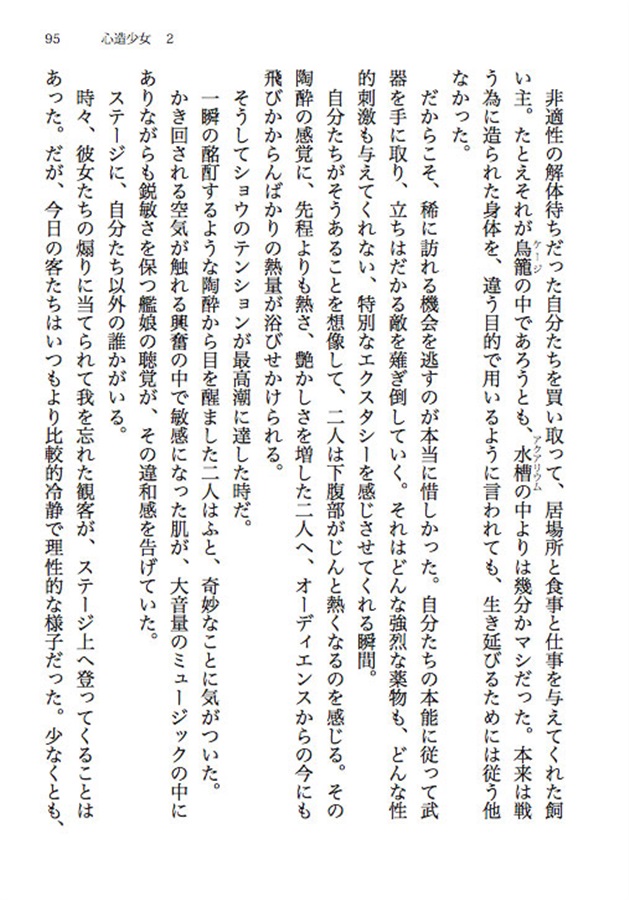 95　心造少女　2
非適性の解体待ちだった自分たちを買い取って、居場所と食事と仕事を与えてくれた飼
い主。たとえそれが鳥籠の中であろうとも、水槽の中よりは幾分かマシだった。本来は戦
ケージ
アクアリウム
う為に造られた身体を、違う目的で用いるように言われても、生き延びるためには従う他
なかった。
だからこそ、稀に訪れる機会を逃すのが本当に惜しかった。自分たちの本能に従って武
器を手に取り、立ちはだかる敵を薙ぎ倒していく。それはどんな強烈な薬物も、どんな性
的刺激も与えてくれない、特別なエクスタシーを感じさせてくれる瞬間。
自分たちがそうあることを想像して、二人は下腹部がじんと熱くなるのを感じる。その
陶酔の感覚に、先程よりも熱さ、艶かしさを増した二人へ、オーディエンスからの今にも
飛びかからんばかりの熱量が浴びせかけられる。
そうしてショウのテンションが最高潮に達した時だ。
一瞬の酩酊するような陶酔から目を醒ました二人はふと、奇妙なことに気がついた。
かき回される空気が触れる興奮の中で敏感になった肌が、大音量のミュージックの中に
ありながらも鋭敏さを保つ艦娘の聴覚が、その違和感を告げていた。
ステージに、自分たち以外の誰かがいる。
時々、彼女たちの煽りに当てられて我を忘れた観客が、ステージ上へ登ってくることは
あった。だが、今日の客たちはいつもより比較的冷静で理性的な様子だった。少なくとも、